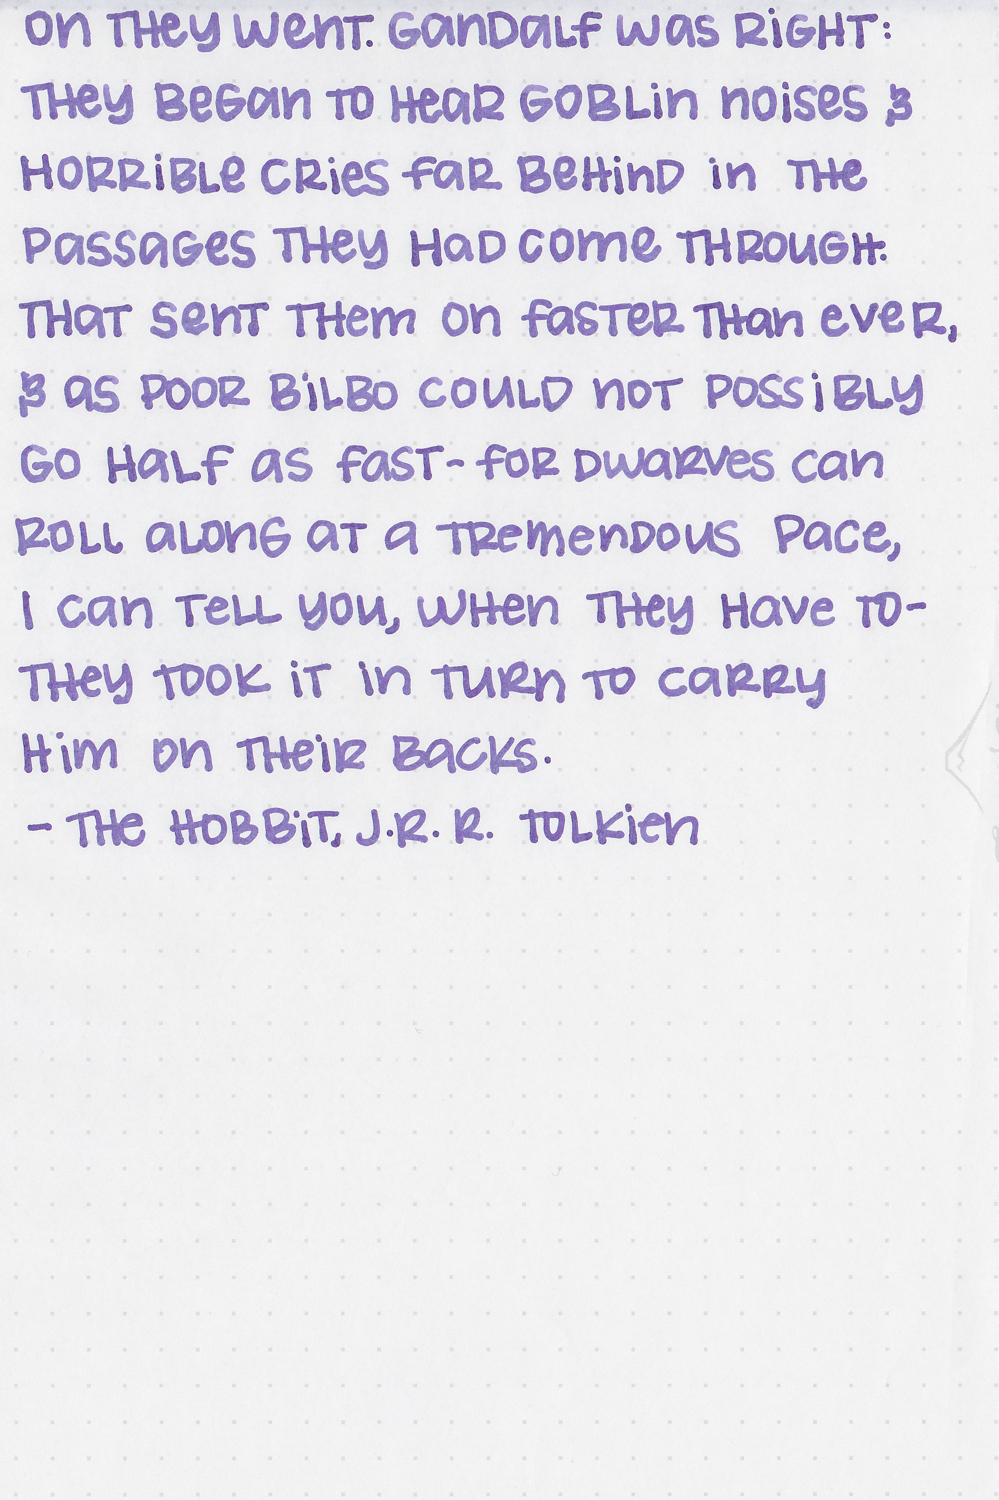 On they went. Gandalf was right:
they began to hear goblin noises &
horrible cries far behind in the
passages they had come through.
That sent them on faster than ever,
& as poor Bilbo could not possibly
go half as fast- for dwarves can
roll along at a tremendous pace,
I can tell you, when they have to-
they took it in turn to carry
him on their backs.
- The Hobbit, J.R.R. Tolkien